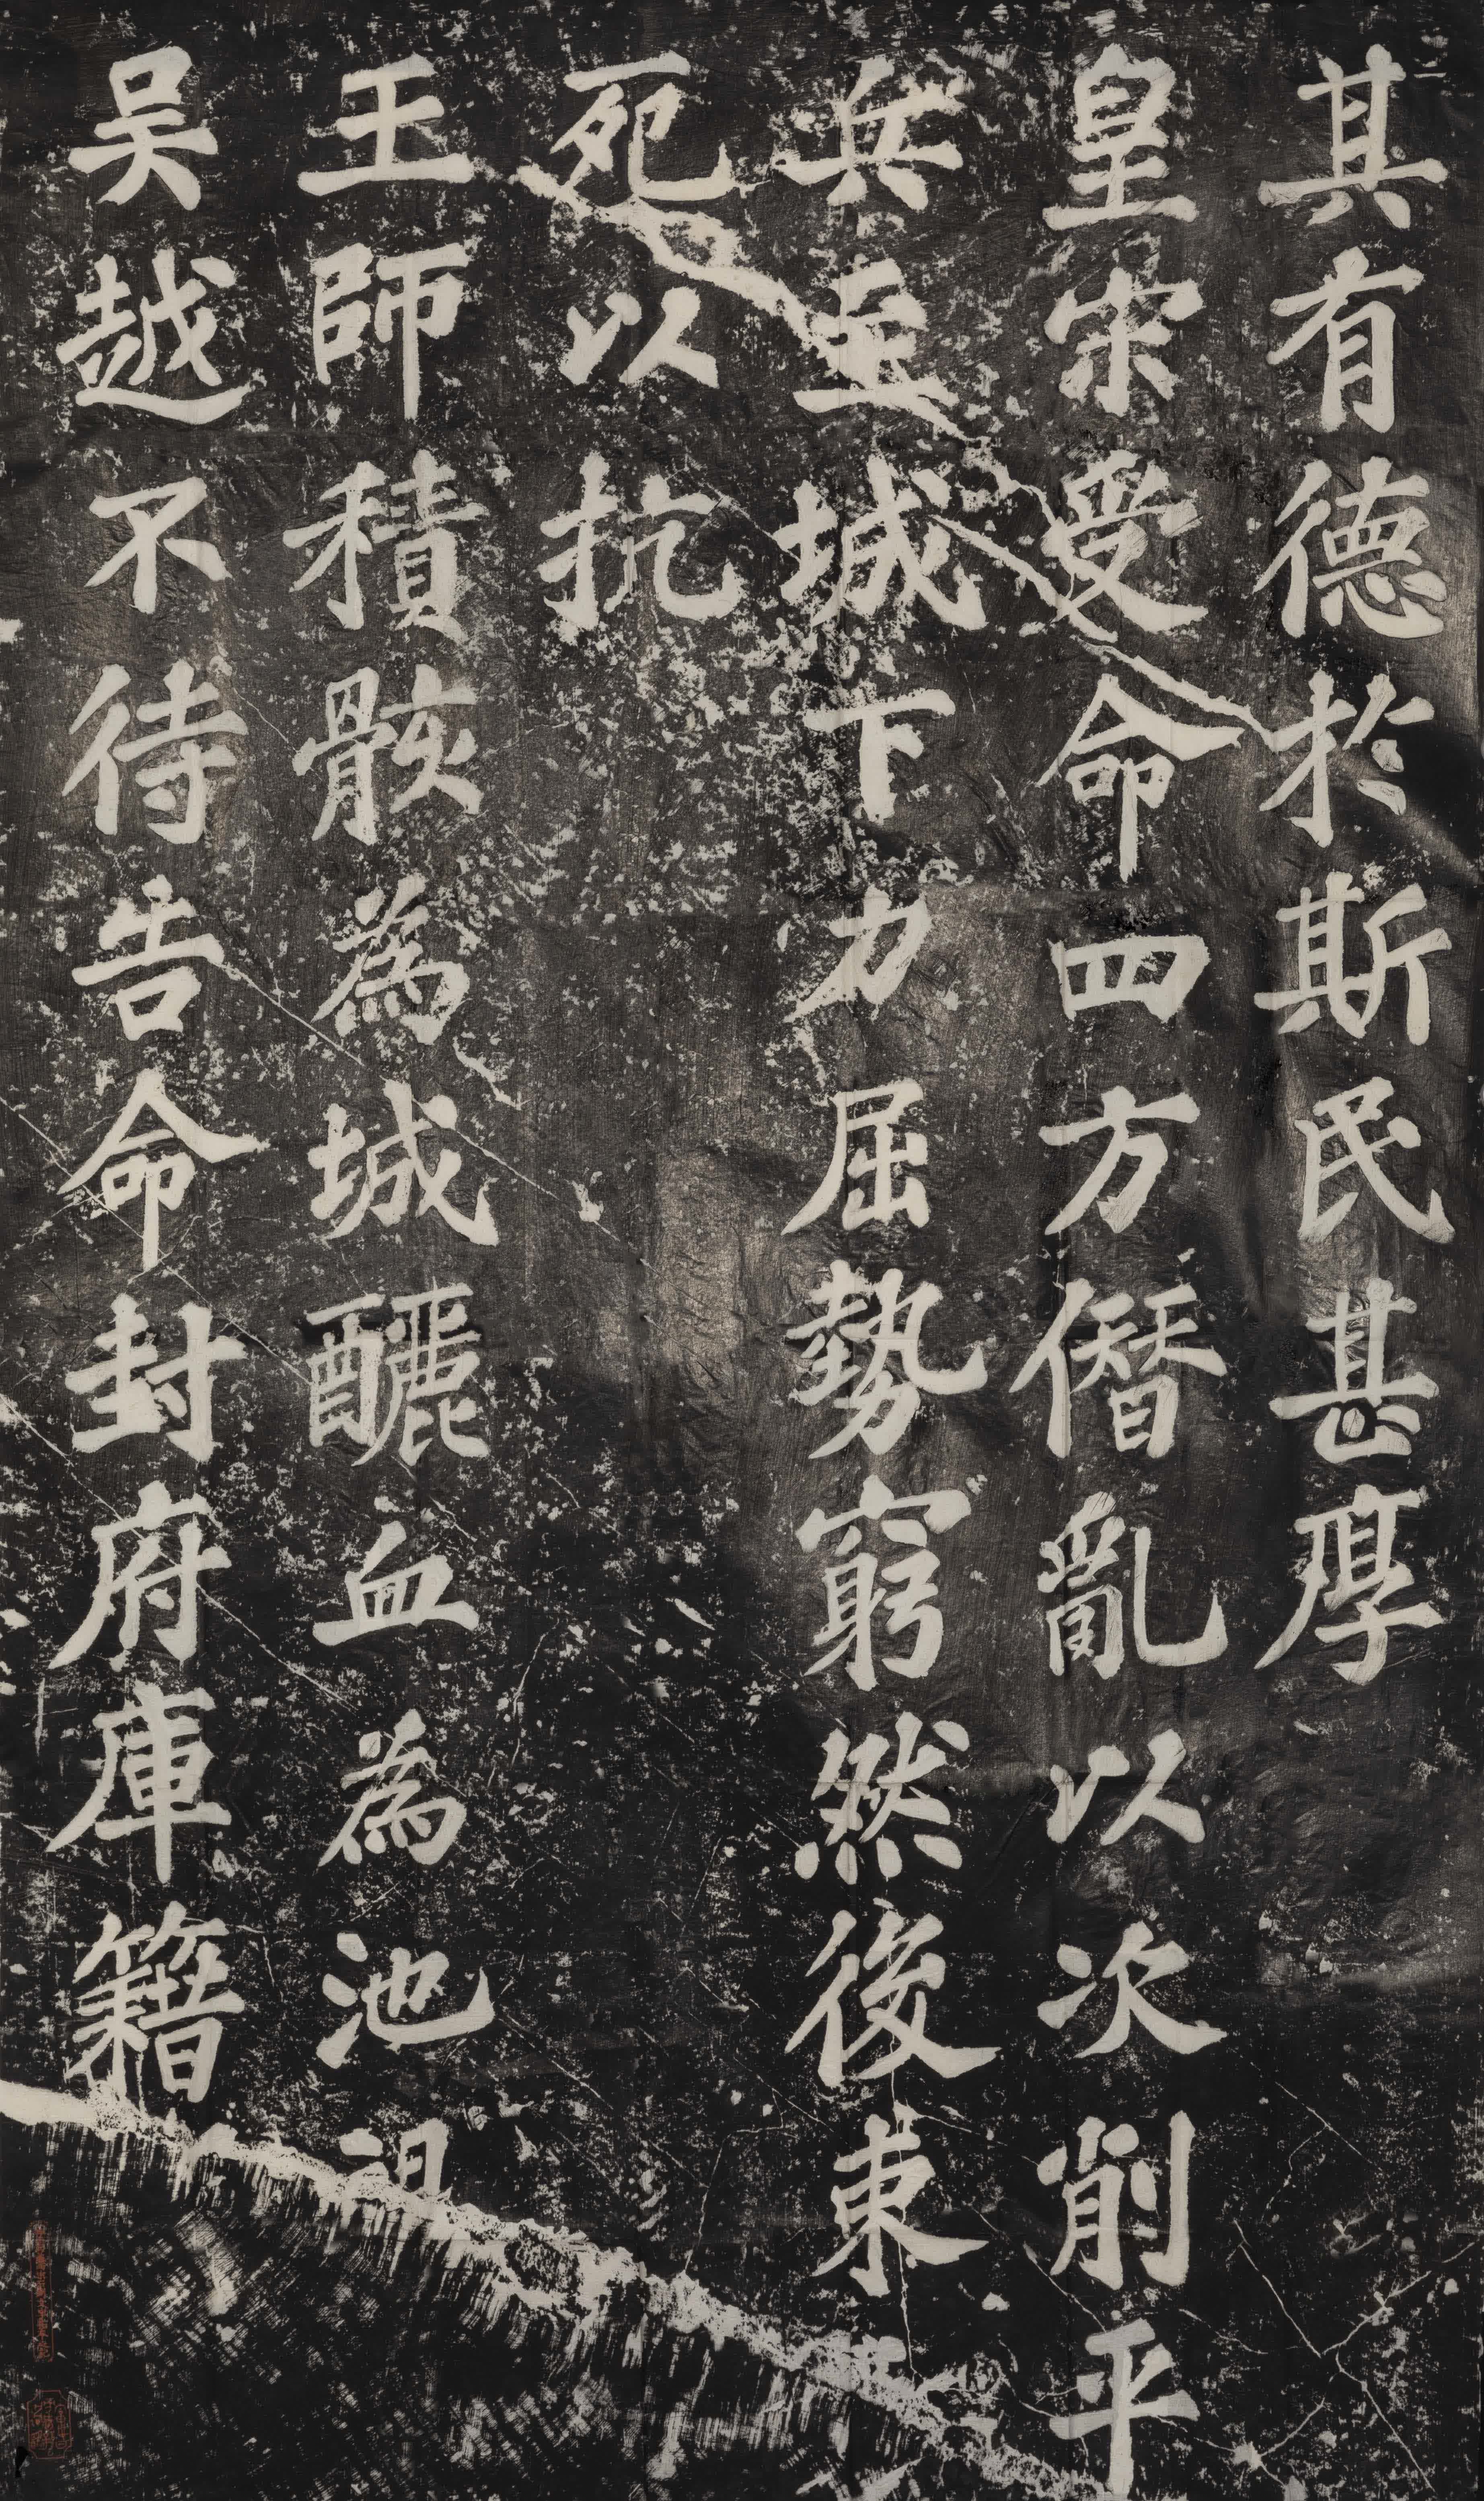 其有德於斯民甚厚
皇宋受命四方僭亂以次削平
兵至城下力屈勢窮然後束
死以抗
王師積骸為城釃血為池
吴越不待告命封府庫籍